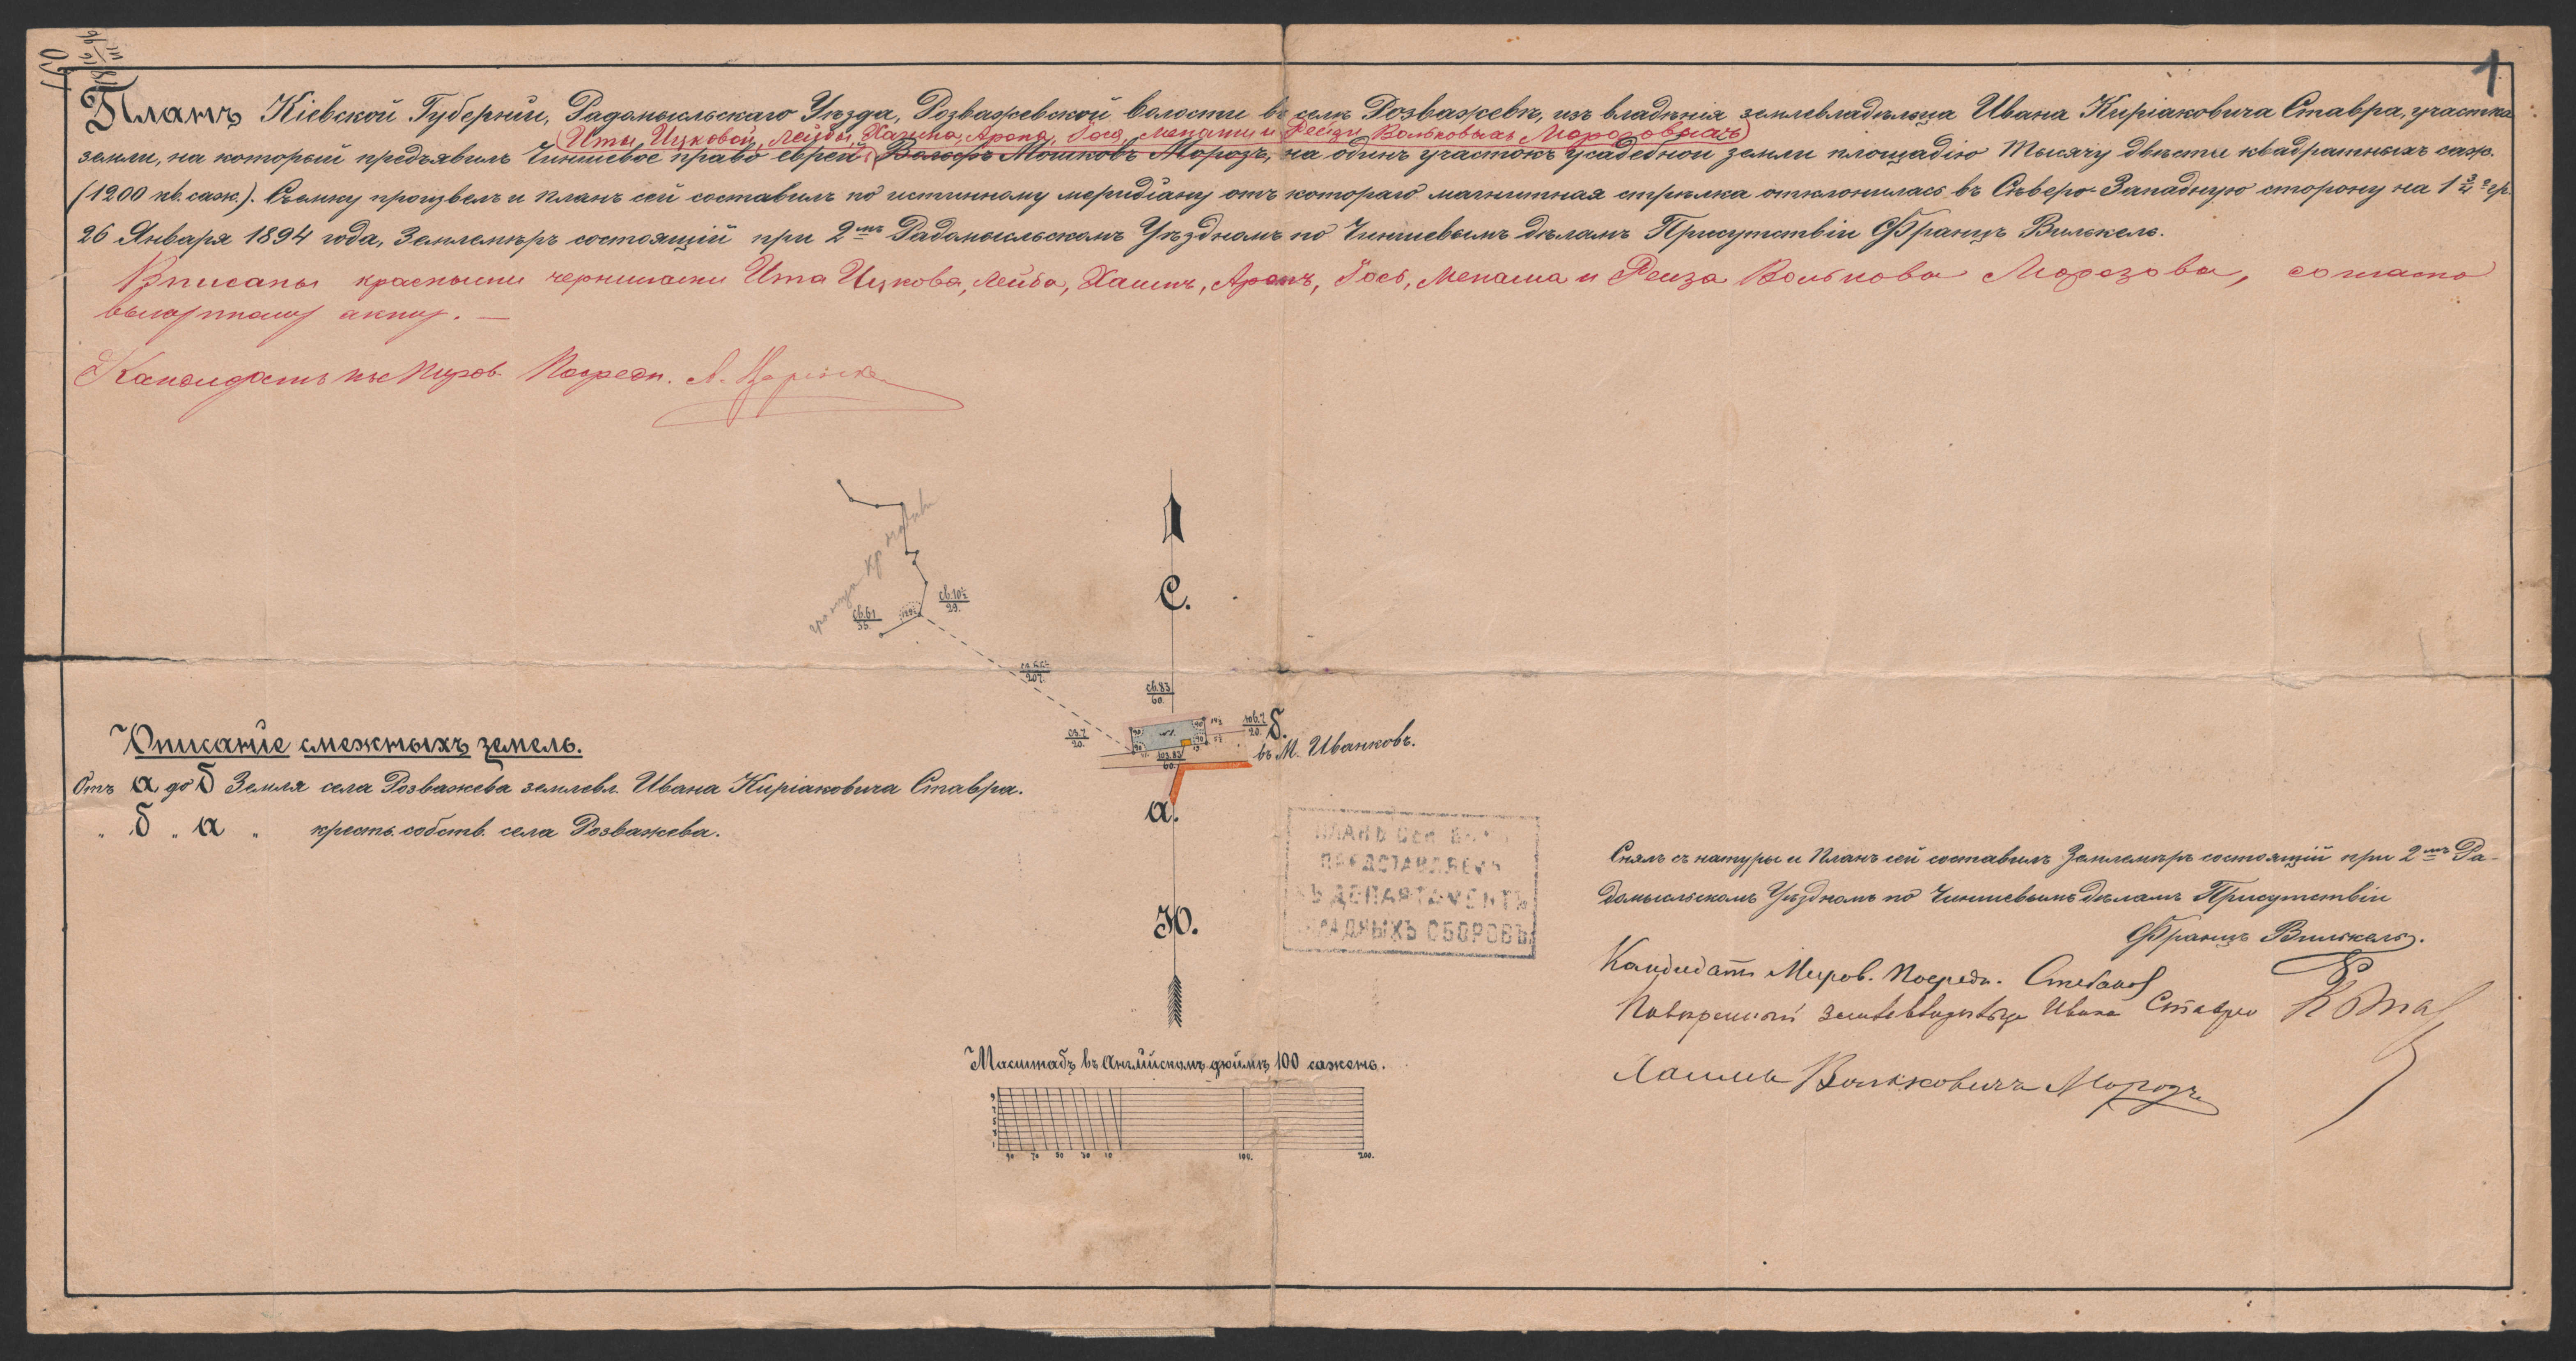 1
Планъ Кіевской Губерніи, Радомысльскаго Уѣзда, Розважевской волости въ селѣ Розважевѣ, изъ владѣнія землевладѣльца Ивана Киріаковича Ставра, участка
(Иты Ицковой, Лейбы, Хаима, Арона, Гося, Менаши и Рейзи Вольковыхъ Морозовыхъ)
земли, на который предъявилъ Чиншевое право еврей Вольфъ Мошковъ Морозъ, на одинъ участокъ усадебной земли площадію Тысячу двѣсти квадратныхъ саж.
(1200 кв. саж.). Съемку произвелъ и планъ сей составилъ по истинному меридіану отъ котораго магнитная стрѣлка отклонилась въ Сѣверо-Западную сторону на 1 гр.
26 Января 1894 года, Землемѣръ состоящій при 2мъ Радомысльскомъ Уѣздномъ по Чиншевымъ дѣламъ Присутствіи Францъ Вилькель.
Вписаны красными чернилами Ита Ицкова, Лейба, Хаимъ, Аронъ, Гось, Менаша и Рейза Волькова Морозовы, согласно
выкупному акту. —
Кандидатъ къ Миров. Посредн.
граница кр
С.
св.61
св.10½
29.
207.
св.83
60.
св.7
20.
юв.7
20.
б.
въ М. Иванковъ.
юз.83
60.
а.
Описаніе смежныхъ земель.
Отъ а до б Земля села Розважева землевл. Ивана Киріаковича Ставра.
„ б „ а „ крестъ. собств. села Розважева.
ПЛАНЪ
ПРЕДСТАВЛЕНЪ
ВЪ ДЕПАРТАМЕНТЪ
ОКЛАДНЫХЪ СБОРОВЪ
Ю.
Снялъ съ натуры и Планъ сей составилъ Землемѣръ состоящій при 2мъ Ра-
домысльскомъ Уѣздномъ по Чиншевымъ дѣламъ Присутствіи
Францъ Вилькель.
Кандидатъ Миров. Посредн.
Повѣренный землевладѣльца Ивана Ставро
Хаимъ Вольковичъ Морозъ
Масштабъ въ Англійскомъ дюймѣ 100 саженъ.
90 70 50 30 10 100. 200.